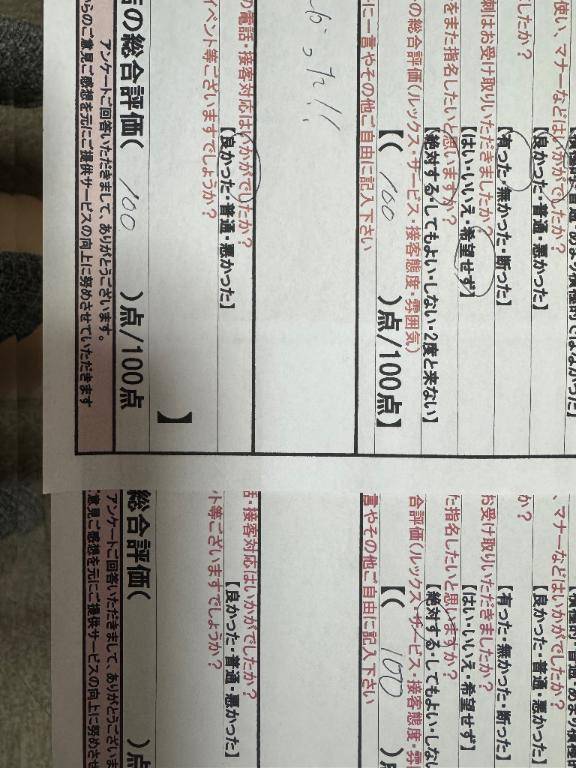 使い、マナーなどはいかがでしたか？
【良かった・普通・悪かった】
したか？
【有った・無かった・断った】
刺はお受け取りいただきましたか？
【はい・いいえ・希望せず】
をまた指名したいと思いますか？
【絶対する・してもよい・しない・2度と来ない】
の総合評価(ルックス・サービス・接客態度・雰囲気)
【( 100 )点/100点】
に一言やその他ご自由に記入下さい
かった!!
の電話・接客対応はいかがでしたか？
【良かった・普通・悪かった】
イベント等ございますでしょうか？
】
店の総合評価( 100 )点/100点
アンケートご回答いただきまして、ありがとうございます。
からのご意見ご感想を元にご提供サービスの向上に努めさせていただきます
、マナーなどはいかがでしたか？
【良かった・普通・悪かった】
か？
【有った・無かった・断った】
お受け取りいただきましたか？
【はい・いいえ・希望せず】
た指名したいと思いますか？
【絶対する・してもよい・しない
合評価(ルックス・サービス・接客態度・雰
【( 100 )点
言やその他ご自由に記入下さい
話・接客対応はいかがでしたか？
【良かった・普通・悪かった】
ト等ございますでしょうか？
総合評価( )点
アンケートご回答いただきまして、ありがとうございま
意見ご感想を元にご提供サービスの向上に努めさせ